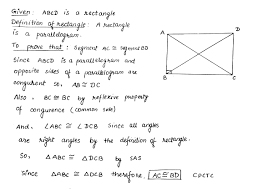 Given: ABCD is a rectangle
Definition of rectangle: A rectangle
is a parallelogram.
To prove that: Segment AC ≅ segment BD
Since ABCD is a parallelogram and
opposite sides of a parallelogram are
congruent so, AB ≅ DC
Also, BC ≅ BC by reflexive property
of congruence (common side)
And, ∠ABC ≅ ∠DCB Since all angles
are right angles by the definition of rectangle.
So, △ABC ≅ △DCB by SAS
Since △ABC ≅ △DCB therefore, AC ≅ BD CPCTC
A D
B C